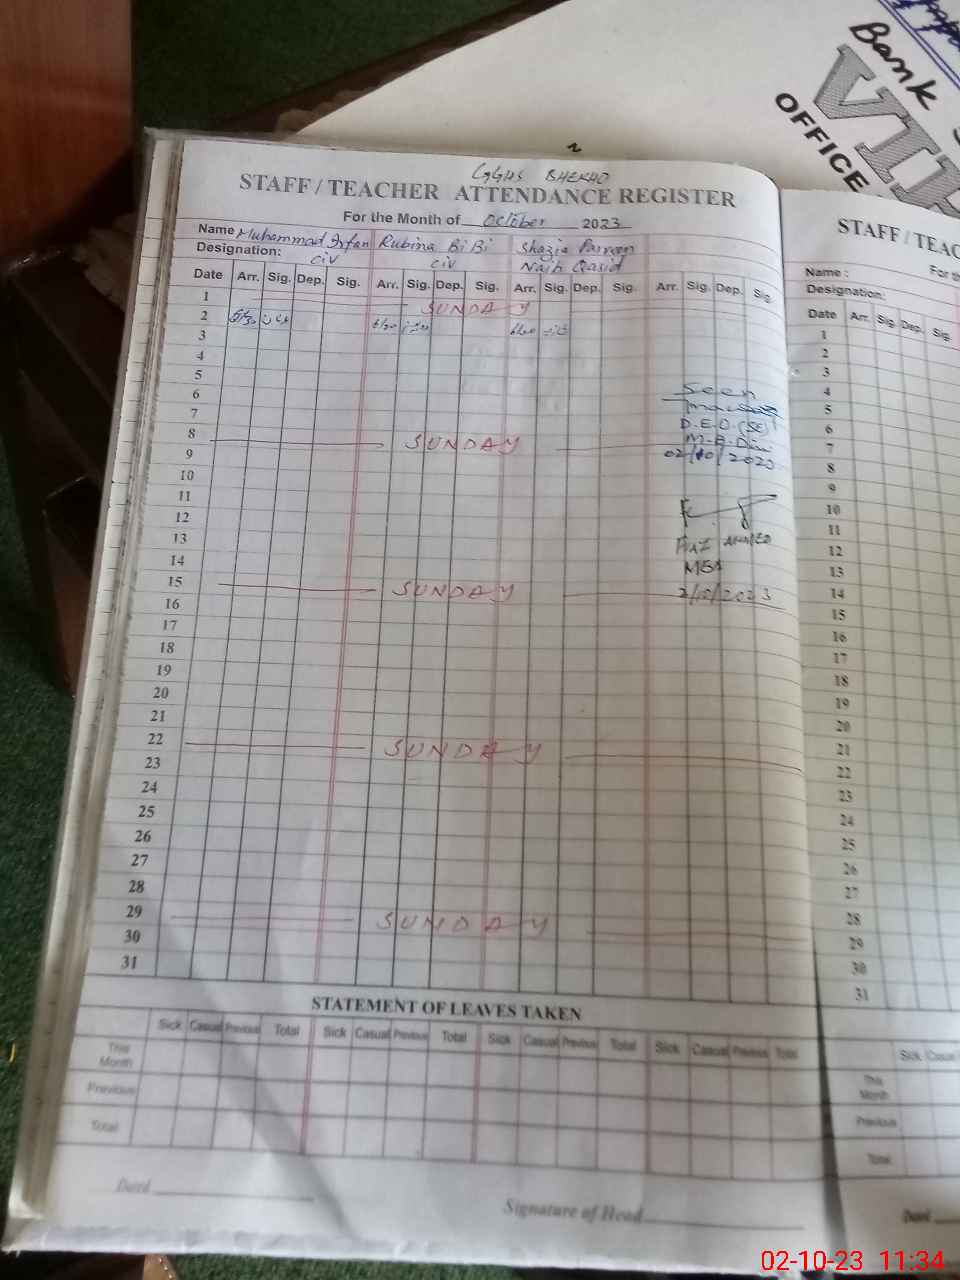 Bank
OFFICE
GGHS BHEKHO
STAFF / TEACHER ATTENDANCE REGISTER
For the Month of October 2023
Name Muhammad Irfan Rubina BiBi Shazia Parveen
Designation: civ civ Naib Qasid
Date Arr. Sig. Dep. Sig. Arr. Sig. Dep. Sig. Arr. Sig. Dep. Sig. Arr. Sig. Dep. Sig.
1 SUNDAY
2
3
4
5
6 Seen
7 D.E.O.(SE)
8 SUNDAY
9 02/10/2023
10
11
12
13
14 MEA
15 SUNDAY 2/10/2023
16
17
18
19
20
21
22 SUNDAY
23
24
25
26
27
28
29 SUNDAY
30
31
STATEMENT OF LEAVES TAKEN
Sick Casual Previous Total Sick Casual Previous Total Sick Casual Previous Total Sick Casual Previous Total
This Month
Previous
Total
Dated
Signature of Head
STAFF / TEAC
Name : For th
Designation:
Date Arr. Sig. Dep. Sig.
1
2
3
4
5
6
7
8
9
10
11
12
13
14
15
16
17
18
19
20
21
22
23
24
25
26
27
28
29
30
31
Sick Casual
This Month
Previous
Total
Dated
02-10-23 11:34